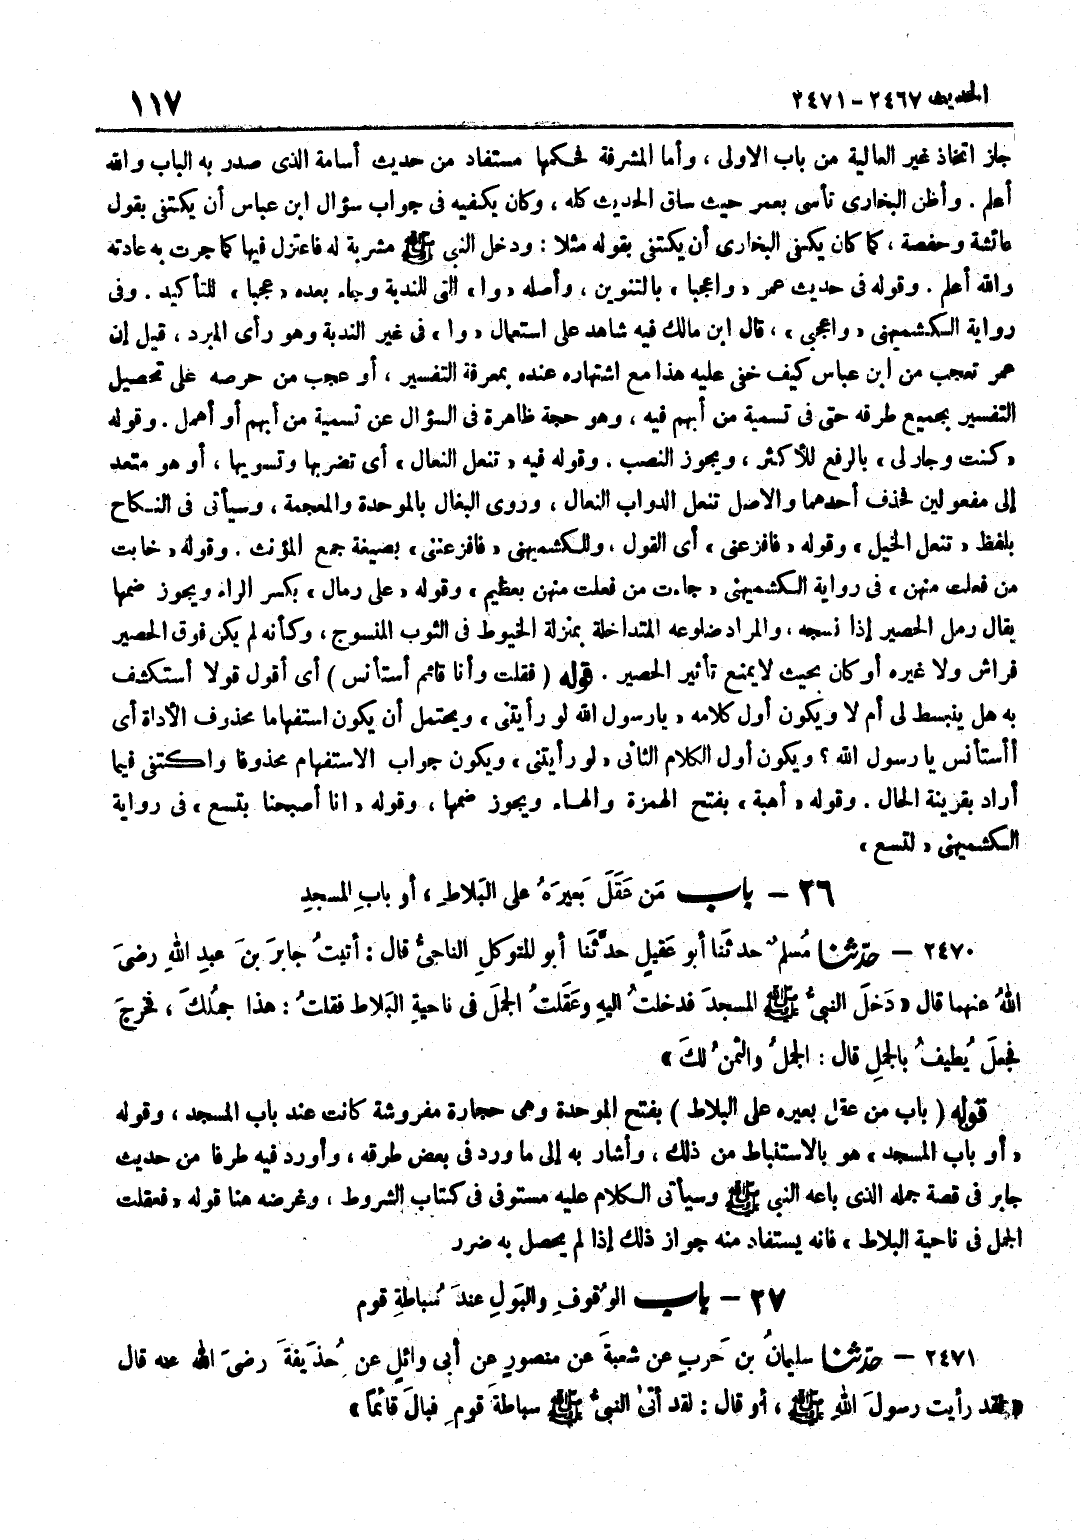 الحديث ٢٤٦٧ - ٢٤٧١ ١١٧
جاز اتخاذ غير العالية من باب الاولى ، وأما المشرفة فحكمها مستفاد من حديث أسامة الذى صدر به الباب والله
أعلم . وأظن البخارى تأسى بعمر حيث ساق الحديث كله ، وكان يكفيه فى جواب سؤال ابن عباس أن يكتفى بقول
عائشة وحفصة ، كما كان يكفى البخارى أن يكتفى بقوله مثلا : ودخل النبى ﷺ مشربة له فاعتزل فيها كما جرت به عادته
والله أعلم . وقوله فى حديث عمر « واعجبا » بالتنوين ، وأصله « وا » التى للندبة وجاء بعده « عجبا » للتأكيد . وفى
رواية الكشميهنى « واعجبي » ، قال ابن مالك فيه شاهد على استعمال « وا » فى غير الندبة وهو رأى المبرد ، قيل إن
عمر تعجب من ابن عباس كيف خفى عليه هذا مع اشتهاره عنده بمعرفة التفسير ، أو عجب من حرصه على تحصيل
التفسير بجميع طرقه حتى فى تسمية من أبهم فيه ، وهو حجة ظاهرة فى السؤال عن تسمية من أبهم أو أهمل . وقوله
« كنت وجار لى » بالرفع للأكثر ، ويجوز النصب . وقوله فيه « تنعل النعال » أى تضربها وتسويها ، أو هو متعد
إلى مفعولين فحذف أحدهما والاصل تنعل الدواب النعال ، وروى البغال بالموحدة والمعجمة ، وسيأتى فى النكاح
بلفظ « تنعل الخيل » وقوله « فافزعنى » أى القول ، وللكشميهنى « فافزعننى » بصيغة جمع المؤنث . وقوله « خابت
من فعلت منهن » فى رواية الكشميهنى « جاءت من فعلت منهن بعظيم » وقوله « على رمال » بكسر الراء ويجوز ضمها
يقال رمل الحصير إذا نسجه ، والمراد ضلوعه المتداخلة بمنزلة الخيوط فى الثوب المنسوج ، وكأنه لم يكن فوق الحصير
فراش ولا غيره أو كان بحيث لا يمنع تأثير الحصير . قوله ( فقلت وأنا قائم أستأنس ) أى أقول قولا أستكشف
به هل ينبسط لى أم لا ويكون أول كلامه « يارسول الله لو رأيتنى » ويحتمل أن يكون استفهاما محذوف الأداة أى
أأستأنس يا رسول الله ؟ ويكون أول الكلام الثانى « لو رأيتنى » ويكون جواب الاستفهام محذوفا واكتفى فيما
أراد بقرينة الحال . وقوله « أهبة » بفتح الهمزة والهاء ويجوز ضمها ، وقوله « انا أصبحنا بتسع » فى رواية
الكشميهنى « لتسع »
٢٦ - باب مَن عَقَلَ بَعيرَهُ على البَلاطِ ، أو بابِ المسجدِ
٢٤٧٠ - حدّثنا مُسلمٌ حدثَنا أبو عَقيلٍ حدَّثَنا أبو المتوكلِ الناجىُّ قال : أتيتُ جابرَ بنَ عبدِ اللهِ رضىَ
اللهُ عنهما قال « دَخلَ النبىُّ ﷺ المسجدَ فدخلتُ اليهِ وعَقَلتُ الجملَ فى ناحيةِ البَلاط فقلتُ : هذا جملُكَ ، فخرجَ
فجعلَ يُطيفُ بالجملِ قال : الجملُ والثمنُ لكَ »
قوله ( باب من عقل بعيره على البلاط ) بفتح الموحدة وهى حجارة مفروشة كانت عند باب المسجد ، وقوله
« أو باب المسجد » هو بالاستنباط من ذلك ، وأشار به إلى ما ورد فى بعض طرقه ، وأورد فيه طرفا من حديث
جابر فى قصة جمله الذى باعه النبى ﷺ وسيأتى الكلام عليه مستوفى فى كتاب الشروط ، وغرضه هنا قوله « فعقلت
الجمل فى ناحية البلاط » فانه يستفاد منه جواز ذلك إذا لم يحصل به ضرر
٢٧ - باب الوُقوفِ والبَولِ عندَ سُباطةِ قوم
٢٤٧١ - حدّثنا سليمانُ بن حَربٍ عن شعبةَ عن منصورٍ عن أبى وائلٍ عن حُذَيفةَ رضىَ الله عنه قال
« لقد رأيت رسولَ اللهِ ﷺ ، أو قال : لقد أتىٰ النبىُّ ﷺ سباطةَ قومٍ فبالَ قائمًا »